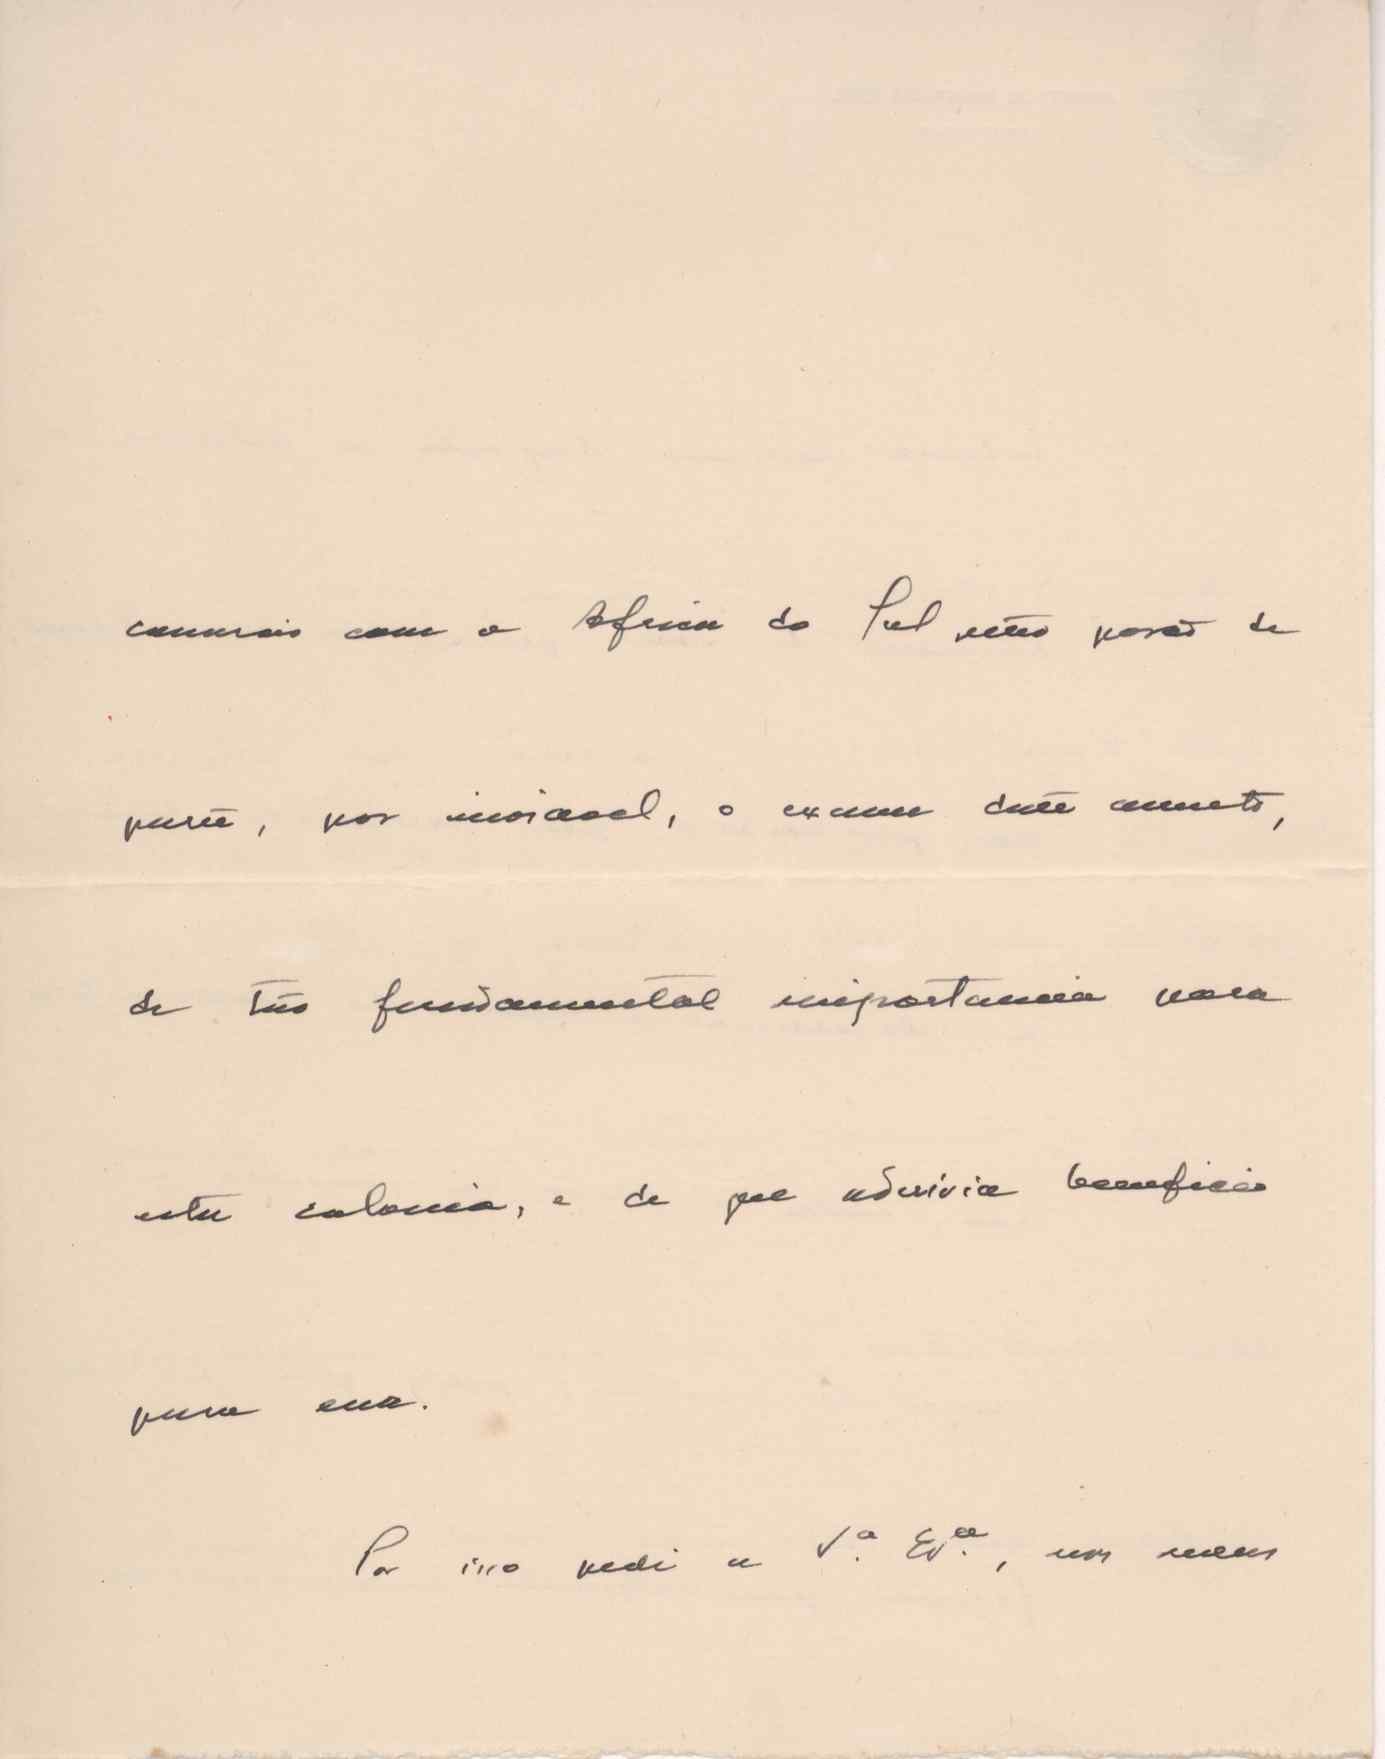 comerciais com a Africa do Sul não porá de
parte, por inviavel, o exame deste assunto,
de tão fundamental importancia para
esta colonia, e de que adviria beneficio
para essa.
Por isso pedi a V.ª Ex.ª, nos meus